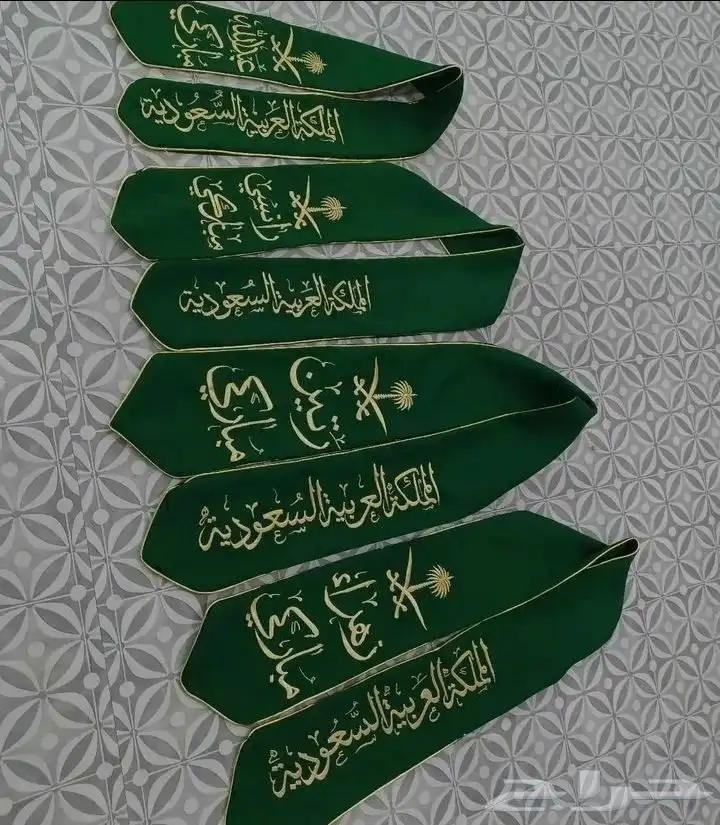 عبدالله
مباركي
المملكة العربية السعودية
دانسي
مباركي
المملكة العربية السعودية
رتين
مباركي
المملكة العربية السعودية
زهراء
مباركي
المملكة العربية السعودية
حراج